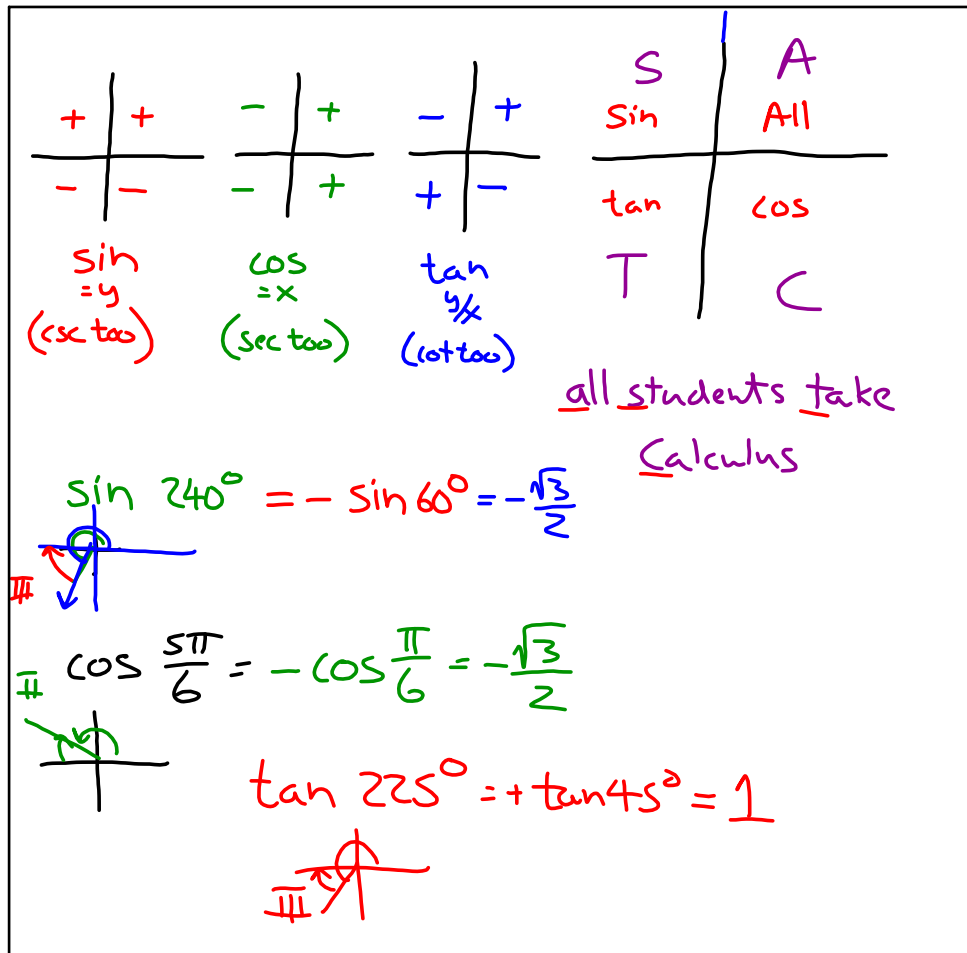 + +
- -
sin
=y
(csc too)
- +
- +
cos
=x
(sec too)
- +
+ -
tan
y/x
(cot too)
S A
sin All
tan cos
T C
all students take
Calculus
sin 240° = - sin 60° = -√3/2
III
cos 5π/6 = - cos π/6 = -√3/2
II
tan 225° = + tan 45° = 1
III